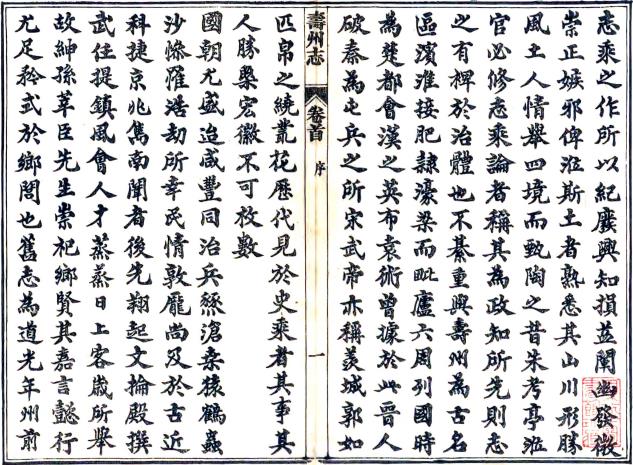 志乘之作所以紀廢興知損益闡幽發微
崇正嫉邪俾涖斯土者熟悉其山川形勝
風土人情舉四境而甄陶之昔朱考亭涖
官必修志乘論者稱其為政知所先則志
之有裨於治體也不綦重與壽州為古名
區濱淮接肥隸濠梁而毗廬六周列國時
為楚都會漢之英布袁術曾據於此晉人
破秦為屯兵之所宋武帝亦稱羨城郭如
壽州志
卷首
序
一
匹帛之繞叢花歷代見於史乘者其事其
人勝槩宏徽不可枚數
國朝尤盛迨咸豐同治兵燹滄桒猿鶴蟲
沙慘罹浩劫所幸民情敦龐尚及於古近
科捷京兆雋南闈者後先翔起文掄殿撰
武任提鎮風會人才蒸蒸日上客歲所舉
故紳孫莘臣先生崇祀鄉賢其嘉言懿行
尤足矜式於鄉閭也舊志為道光年州前